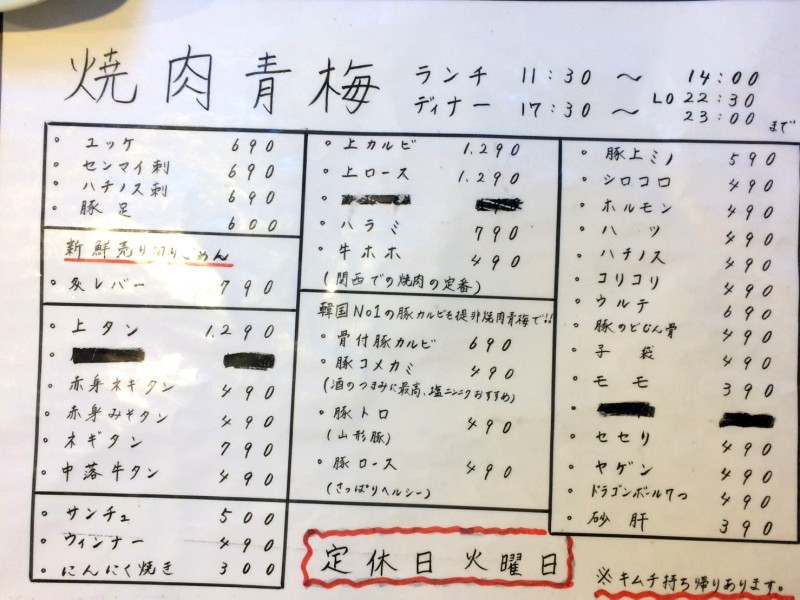 焼肉青梅
ランチ 11:30 〜 14:00
ディナー 17:30 〜 LO 22:30
23:00 まで
・ユッケ 690
・センマイ刺 690
・ハチノス刺 690
・豚足 600
新鮮売り切りごめん
・炙レバー 790
・上タン 1.290
・赤身ネギタン 490
・赤身みそタン 490
・ネギタン 790
・中落牛タン 490
・サンチュ 500
・ウィンナー 490
・にんにく焼き 300
・上カルビ 1.290
・上ロース 1.290
・ハラミ 790
・牛ホホ 490
(関西での焼肉の定番)
韓国No1の豚カルビも是非焼肉青梅で!!
・骨付豚カルビ 690
・豚コメカミ 490
(酒のつまみに最高、塩ニンニクおすすめ)
・豚トロ 490
(山形豚)
・豚ロース 490
(さっぱりヘルシー)
定休日 火曜日
・豚上ミノ 590
・シロコロ 490
・ホルモン 490
・ハツ 490
・ハチノス 490
・コリコリ 490
・ウルテ 690
・豚のどなん骨 490
・子袋 490
・モモ 390
・セセリ 490
・ヤゲン 490
・ドラゴンボール7つ 490
・砂肝 390
※キムチ持ち帰りあります。